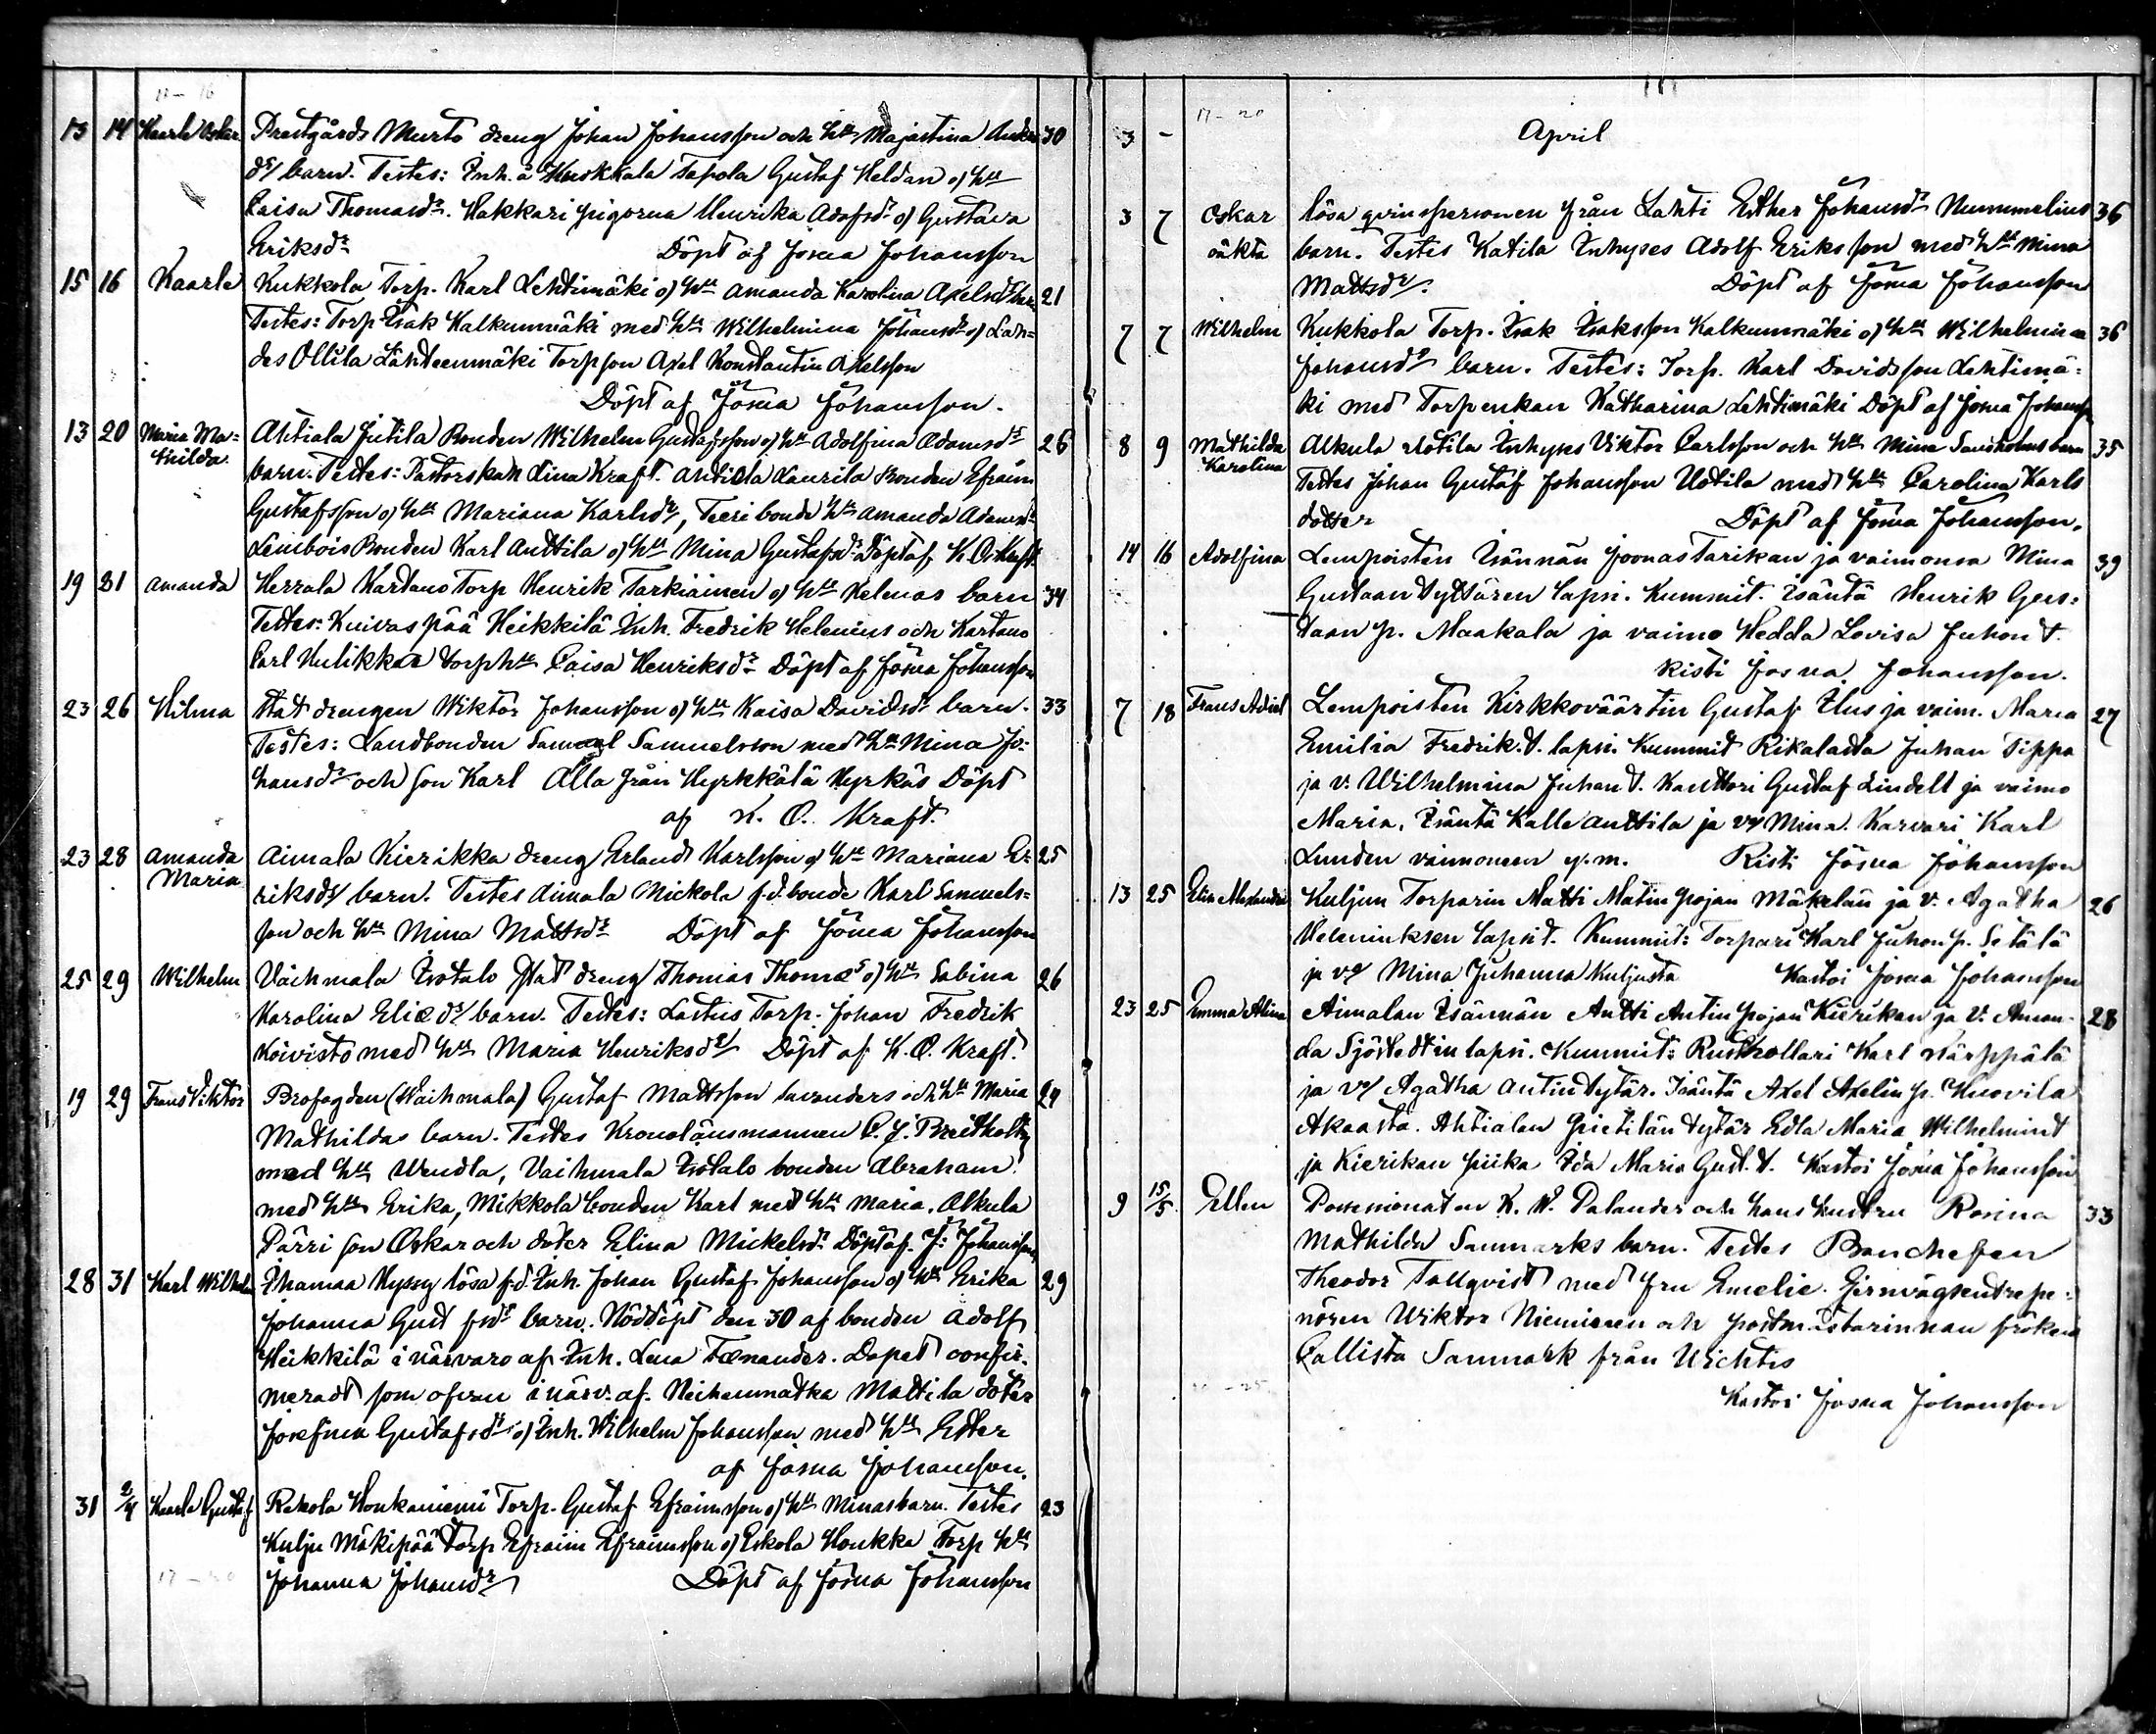 15 14 Kaarle Oskar Prestgårds Murto dreng Johan Johansson och hu Majastina Anders 30
dr barn. Testes: Inh. å Huokkala Tapola Gustaf Heldan o/ hu
Caisa Thomasdr. Hakkari pigorna Henrika Adofsdr o/ Gustava
Eriksdr Döpt af Josua Johansson
15 16 Kaarle Kukkola Torp. Karl Lehtimäki o/ hu Amanda Karolina Axelsdr barn 21
Testes: Torp Isak Kalkunmäki med hu Wilhelmina Johansdr o/ Lah=
des Ollila Lähteenmäki Torpson Axel Konstantin Axelsson
Döpt af Josua Johansson.
13 20 Maria Ma= Ahtiala Jutila Bonden Wilhelm Gustafsson o/ hu Adolfina Adamsdr 26
thilda. barn. Testes: Pastorskan Lina Kraft. Ahtiala Laurila Bonden Efraim
Gustafsson o/ hu Mariana Karlsdr, Teeri bonde hu Amanda Adamsdr
Lembois Bonden Karl Anttila o/ hu Mina Gustafsdr Döpt af K. O. Kraft.
19 31 Amanda Herrala Kartano Torp Henrik Tarkiainen o/ hu Helenas barn 34
Testes: Kuivaspää Heikkilä Inh. Fredrik Helenius och Kartano
Carl Hulikkar Torp hu Caisa Henriksdr Döpt af Josua Johansson
23 26 Hilma Stat drengen Wiktor Johansson o/ hu Kaisa Davidsdr barn. 33
Testes: Landbonden Samuel Samuelsson med hu Mina Jo=
hansdr och son Karl Alla från Hyrkkälä Hyrkäs Döpt
af K. O. Kraft.
23 28 Amanda Aimala Kierikka dreng Erland Karlsson o/ hu Mariana Er 25
Maria riksdr barn. Testes Aimala Mickola f.d. bonde Karl Samuels=
son och hu Mina Mattsdr Döpt af Josua Johansson
25 29 Wilhelm Vaihmala Isotalo Stat dreng Thomas Thomæs o/ hu Sabina 26
Karolina Eliædr barn. Testes: Lastus Torp. Johan Fredrik
Koivisto med hu Maria Henriksdr Döpt af K. O. Kraft.
19 29 Frans Viktor Brofogden (Waihmala) Gustaf Mattsson Lavanders och hu Maria 29
Mathildas barn. Testes Kronolänsmannen C. J. Breitholtz
med hu Wendla, Vaihmala Isotalo bonden Abraham
med hu Erika, Mikkola bonden Karl med hu Maria. Alkula
Pärri son Oskar och doter Elina Mickelsdr Döpt af J: Johansson
28 31 Karl Wilhelm Ihamaa Hyssy lösa f.d. Inh. Johan Gustaf Johansson o/ hu Erika 29
Johanna Gustfsdr barn. Nöddöpt den 30 af bonden Adolf
Heikkilä i närvaro af Inh. Lena Tænander. Dopet confir=
meradt som ofvan i närv. af Neihenmatka Mattila doter
Josefina Gustafsdr o/ Inh. Wilhelm Johansson med hu Ester
af Josua Johansson.
31 2/4 Kaarle Gustaf Rekola Honkaniemi Torp. Gustaf Efraimsson o/ hu Minas barn. Testes 23
Kulju Mäkipää Torp Efraim Efraimsson o/ Eskola Honkka Torp hu
Johanna Johansdr Döpt af Josua Johansson
17 - 20
3 - April
3 7 Oskar lösa qvinspersonen från Lahti Esther Johansdr Nummelins 36
oäkta barn. Testes Katila Inhyses Adolf Eriksson med hu Mina
Mattsdr. Döpt af Josua Johansson
7 7 Wilhelm Kukkola Torp. Isak Isaksson Kalkunmäki o/ hu Wilhelmina 36
Johansdr barn. Testes: Torp. Karl Davidsson Lehtimä=
ki med Torpenkan Katharina Lehtimäki Döpt af Josua Johansson
8 9 Mathilda Alkula Uotila Inhyses Viktor Carlsson och hu Mina barn 35
Karolina Testes Johan Gustaf Johansson Uotila med hu Carolina Karls
dotter Döpt af Josua Johansson.
14 16 Adolfina Lempoisten Isännän Joonas Tarikan ja vaimonsa Mina 39
Gustaan tyttären lapsi. Kummit. Isäntä Henrik Gus=
taan p. Maakala ja vaimo Hedda Lovisa Juhon t.
Kisti Josua Johansson.
7 18 Frans Adiel Lempoisten Kirkkoväärtin Gustaf Ilus ja vaim. Maria 27
Emilia Fredrik. t. lapsi. Kummit Rikalasta Juhan Pippo
ja v. Wilhelmina Juhan t. Kanttori Gustaf Lindell ja vaimo
Maria, Isäntä Kalle Anttila ja v. Mina. Karvari Karl
Lunden vaimoneen y.m. Risti Josua Johansson
13 25 Elin Alexandra Kuljun Torparin Matti Matinpojan Mäkelän ja v. Agatha 26
Heleniuksen lapsi. Kummit: Torpari Karl Juhonp. Setälä
ja v. Mina Juhanna Kuljusta Kastoi Josua Johansson
23 25 Emma Alina Aimalan Isännän Antti Antin pojan Kierikan ja v. Aman= 28
da Sjöstedtin lapsi. Kummit: Rusthollari Karl Kärppälä
ja v. Agatha Antin tytär. Isäntä Axel Axelin p. Huovila
Akaasta. Ahtialan Grietilän tytär Edla Maria Wilhelmint
ja Kierikan piika Ida Maria Gust. t. Kastoi Josua Johansson
9 15/5 Ellen Possessionaten K. W. Palander och hans hustru Rosina 33
Mathilda Sanmarks barn. Testes Banchefen
Theodor Tallqvist med fru Emelie. Jernvägsentrepe=
nören Wiktor Nieminen och postmästarinnan fröken
Callista Sanmark från Wichtis
Kastoi Josua Johansson